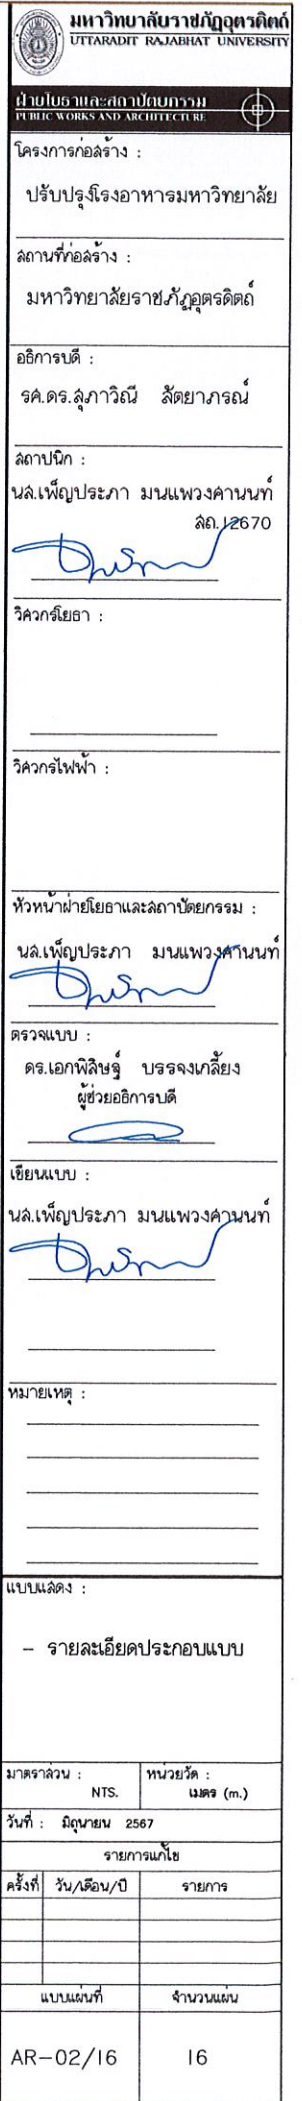 มหาวิทยาลัยราชภัฏอุตรดิตถ์
UTTARADIT RAJABHAT UNIVERSITY
ฝ่ายโยธาและสถาปัตยกรรม
PUBLIC WORKS AND ARCHITECTURE
โครงการก่อสร้าง :
ปรับปรุงโรงอาหารมหาวิทยาลัย
สถานที่ก่อสร้าง :
มหาวิทยาลัยราชภัฏอุตรดิตถ์
อธิการบดี :
รศ.ดร.สุภาวิณี สัตยาภรณ์
สถาปนิก :
นส.เพ็ญประภา มนแพวงศานนท์
สถ.12670
วิศวกรโยธา :
วิศวกรไฟฟ้า :
หัวหน้าฝ่ายโยธาและสถาปัตยกรรม :
นส.เพ็ญประภา มนแพวงศานนท์
ตรวจแบบ :
ดร.เอกพิสิษฐ์ บรรจงเกลี้ยง
ผู้ช่วยอธิการบดี
เขียนแบบ :
นส.เพ็ญประภา มนแพวงศานนท์
หมายเหตุ :
แบบแสดง :
- รายละเอียดประกอบแบบ
มาตราส่วน : หน่วยวัด :
NTS. เมตร (m.)
วันที่ : มิถุนายน 2567
รายการแก้ไข
ครั้งที่ วัน/เดือน/ปี รายการ
แบบแผ่นที่ จำนวนแผ่น
AR-02/16 16